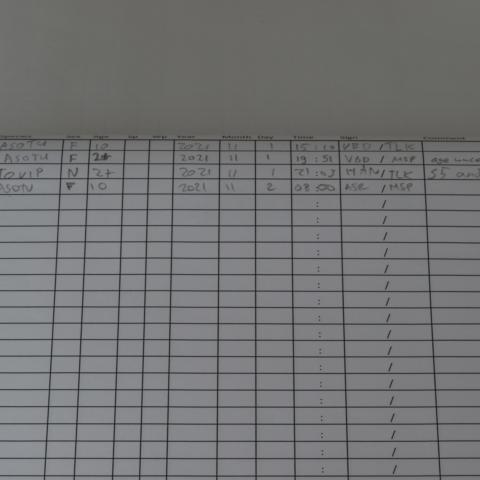 Species Sex Age Sp Wp Year Month Day Time Sign Comment
ASOTU F 10 2021 11 1 15:10 VED/TLK
ASOTU F 2+ 2021 11 1 19:51 VBD/MSP age unce
TOVIP N 2+ 2021 11 1 21:03 HAN/TLK 55 and
ASON F 10 2021 11 2 08:00 ASE/MSP